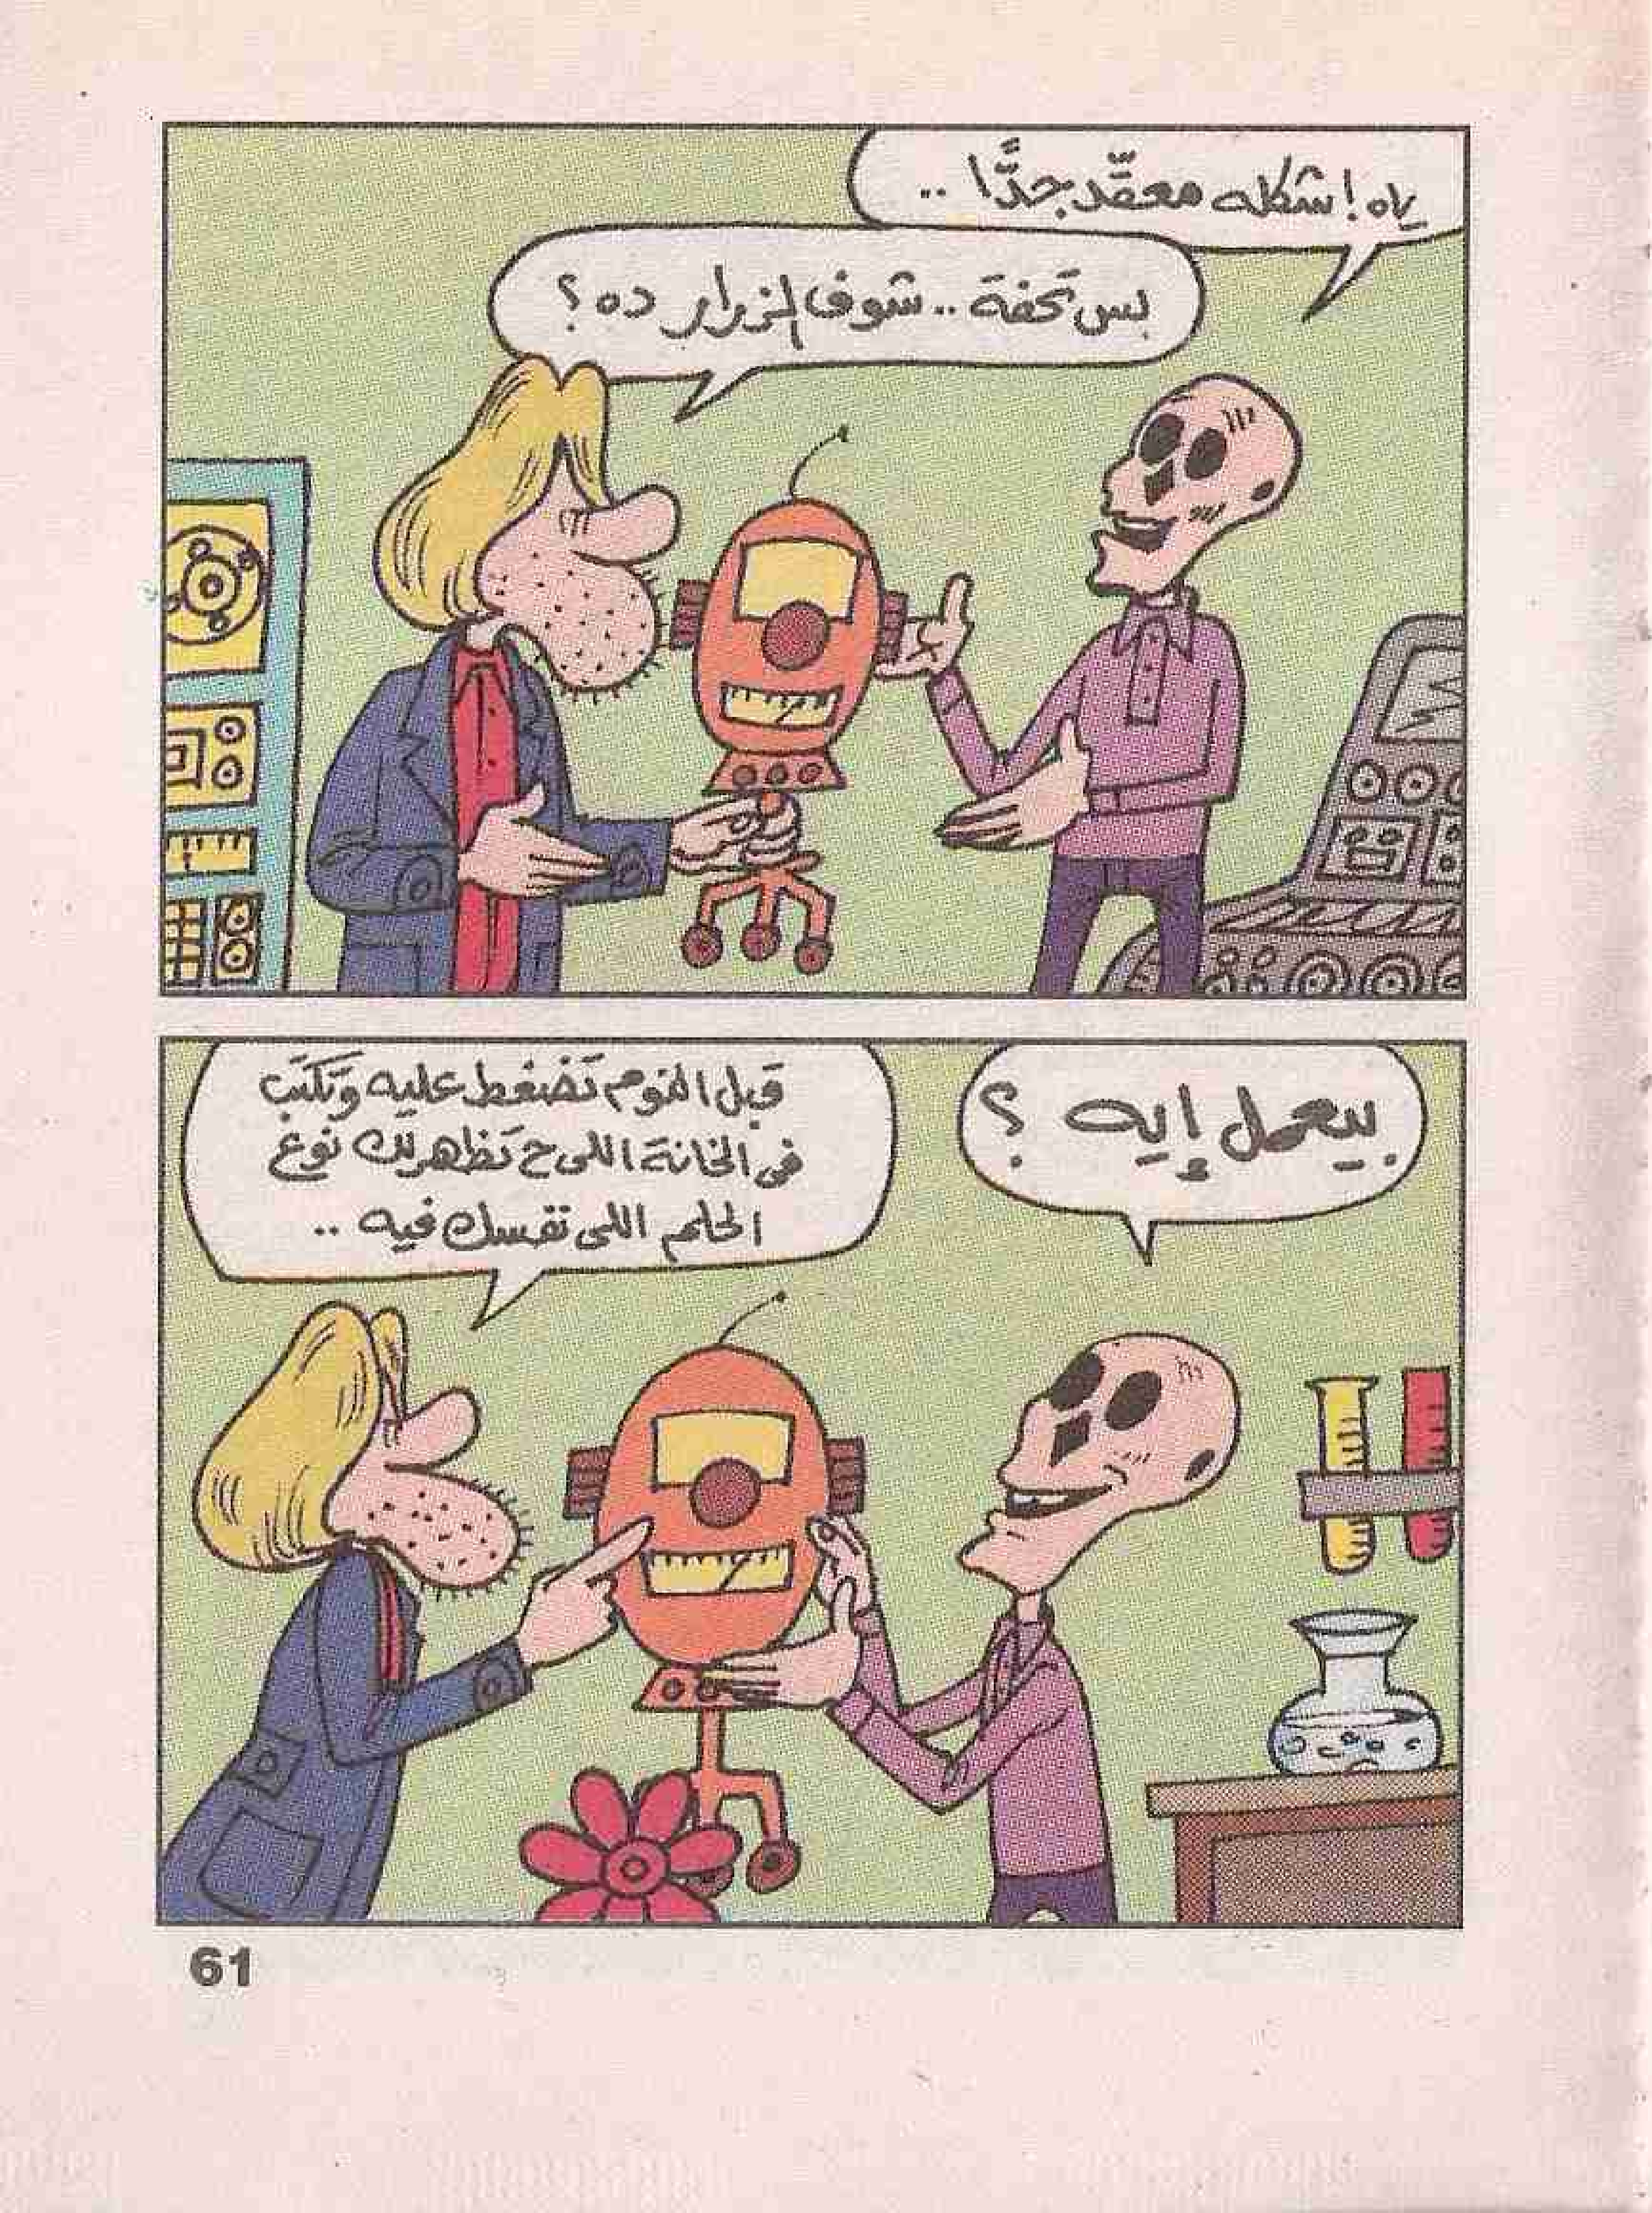 ياه! شكله معقّد جدًّا ..
بس تحفة .. شوف الزرار ده ؟
بيعمل إيه ؟
قبل النوم تضغط عليه وتكتب
فى الخانة اللى ح تظهرلك نوع
الحلم اللى نفسك فيه ..
61